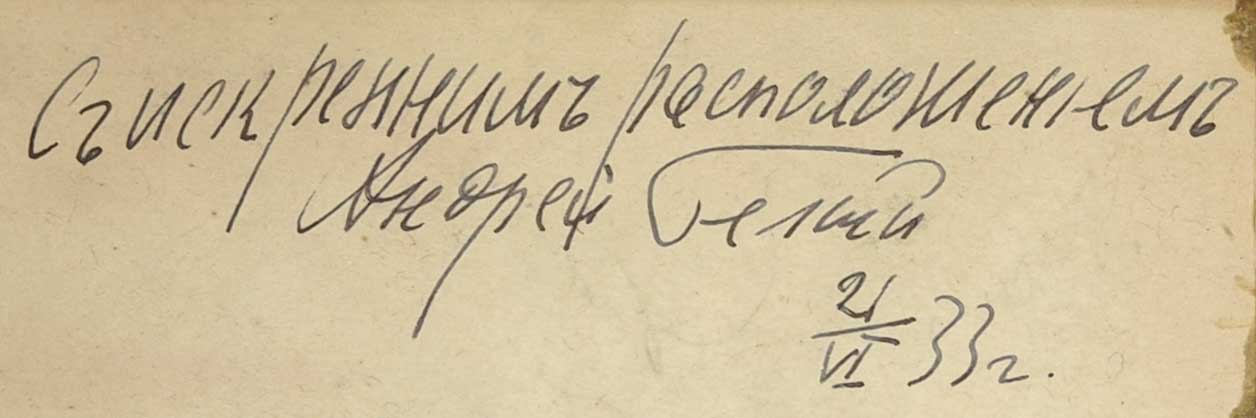 Съ искреннимъ расположенiемъ
Андрей Белый
21/VI 33 г.